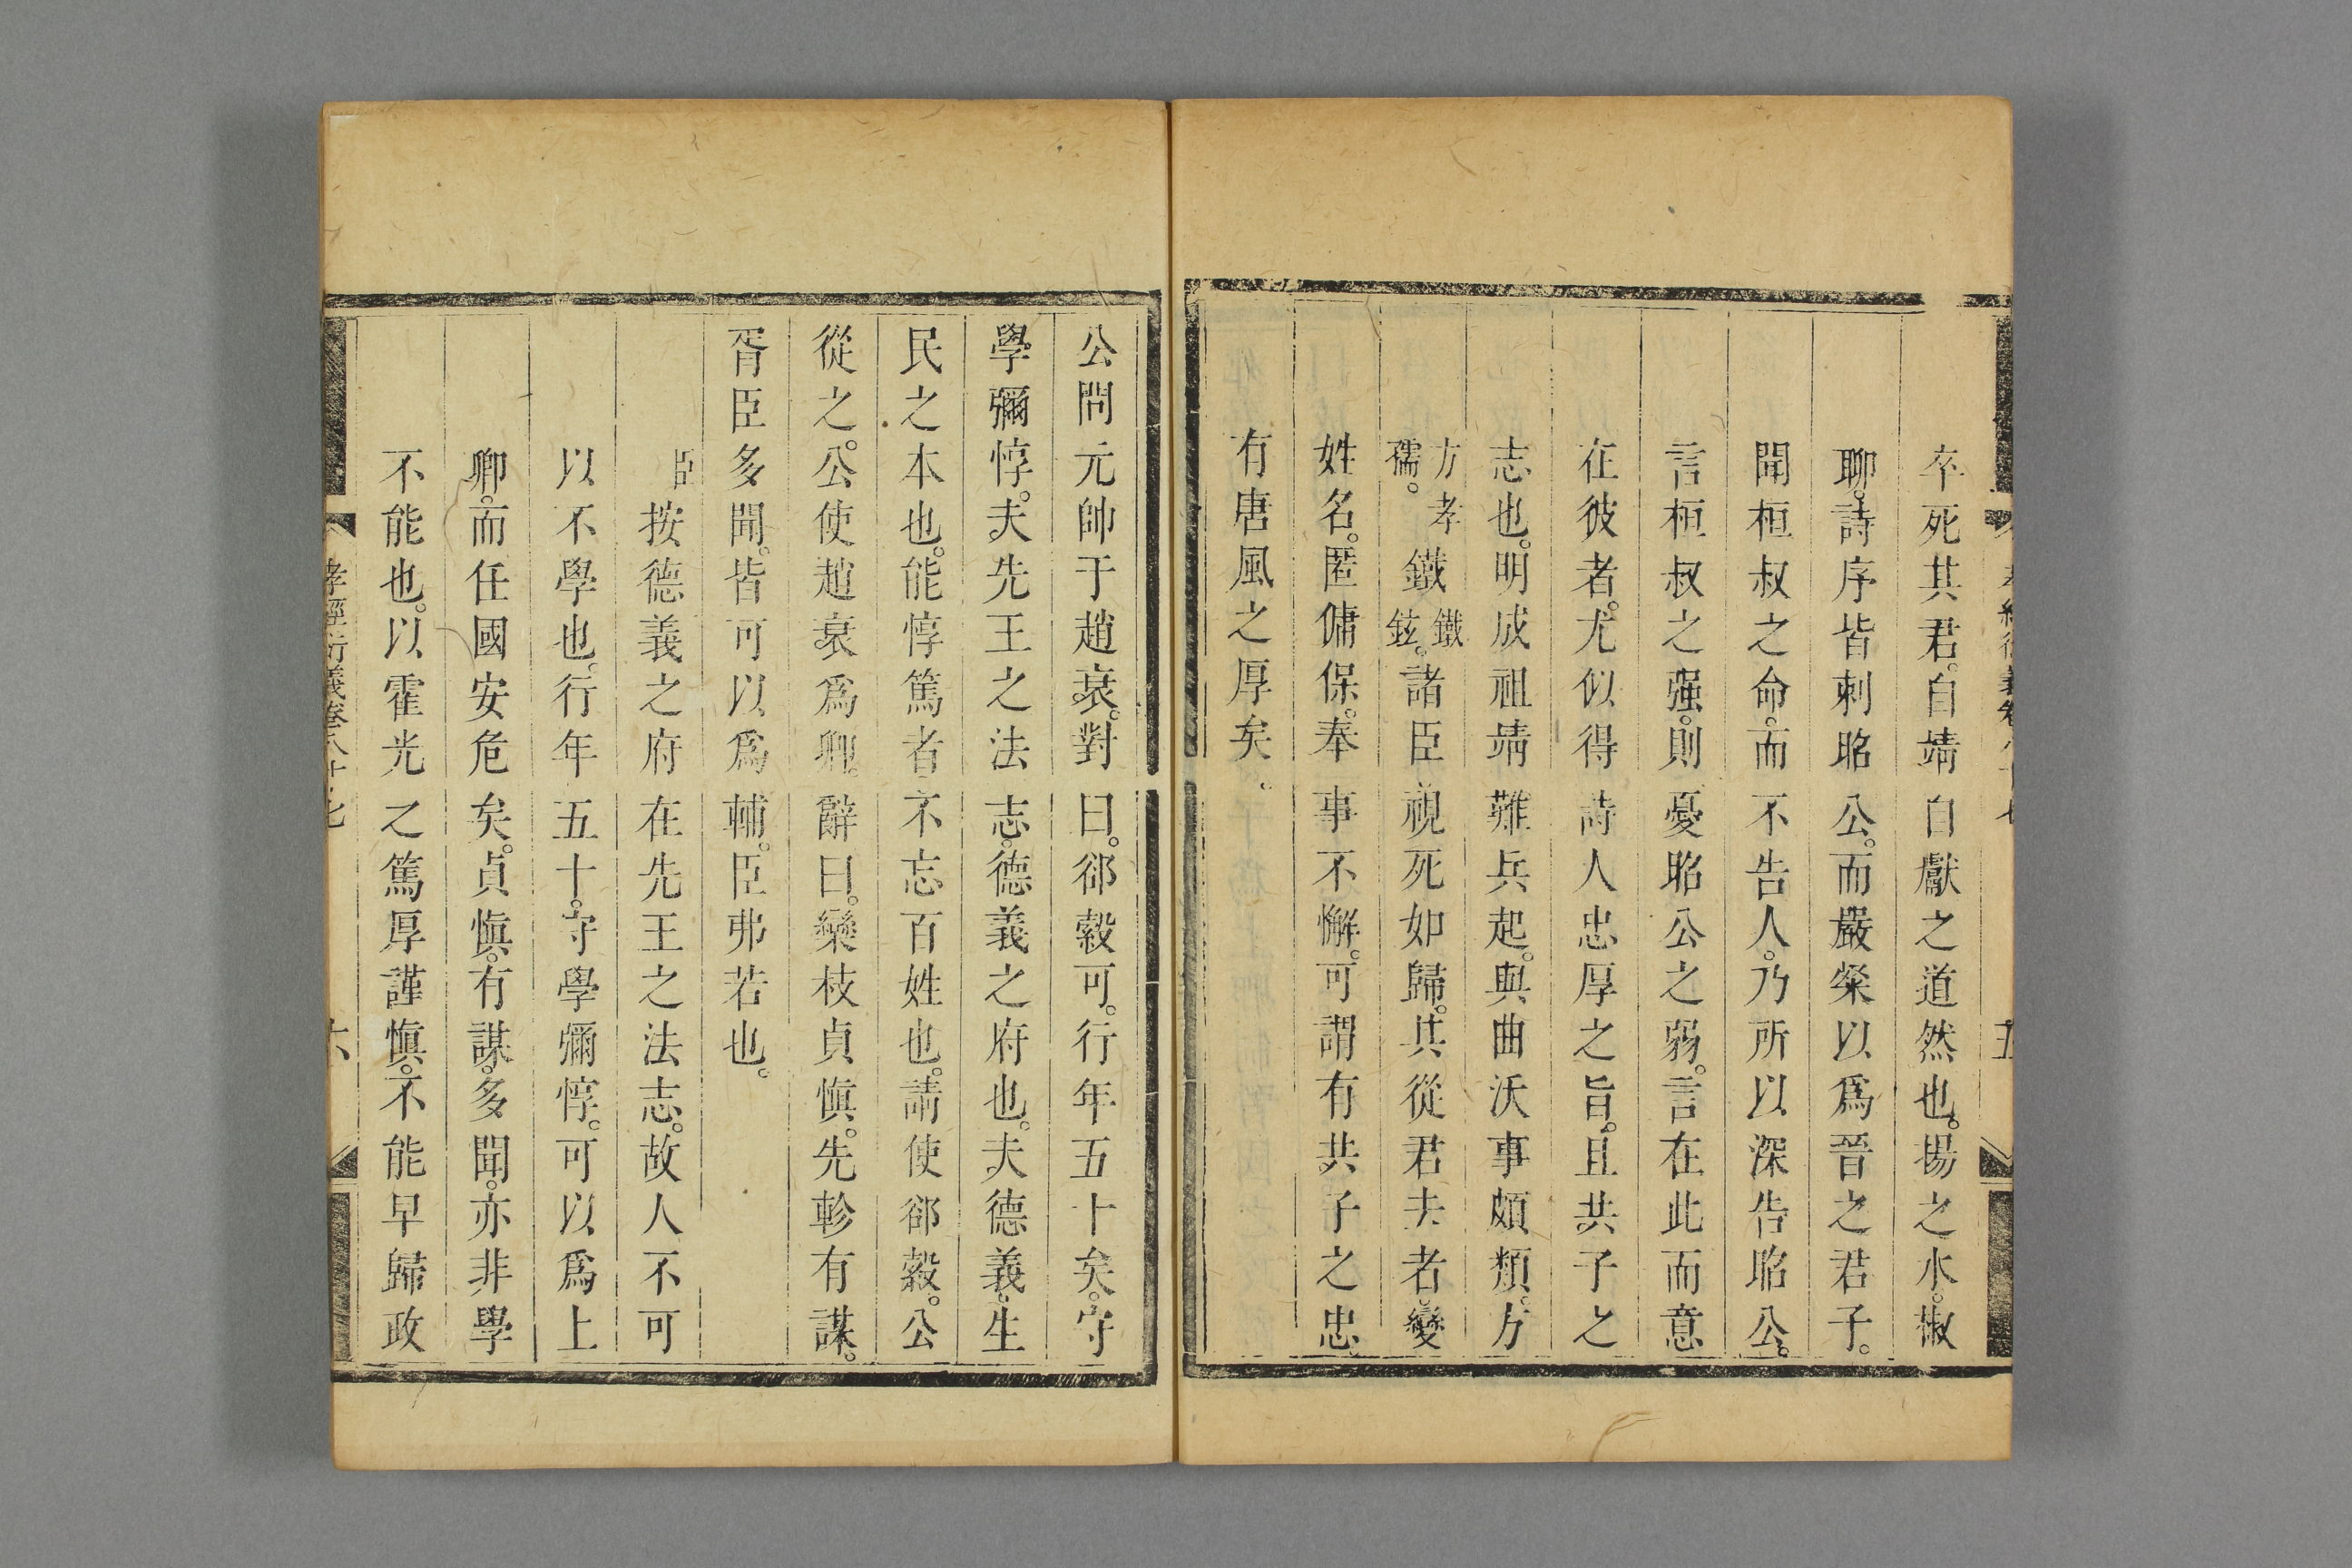 卒死其君。自靖自獻之道然也。揚之水。椒
聊。詩序皆刺昭公。而嚴粲以爲晉之君子。
聞桓叔之命。而不告人。乃所以深告昭公。
言桓叔之强。則憂昭公之弱。言在此而意
在彼者。尤似得詩人忠厚之旨。且共子之
志也。明成祖靖難兵起。與曲沃事頗類。方
方孝孺。鐵鐵鉉。諸臣視死如歸。其從君夫者。變
姓名。匿傭保。奉事不懈。可謂有共子之忠。
有唐風之厚矣。
公問元帥于趙衰。對曰。郤縠可。行年五十矣。守
學彌惇。夫先王之法志。德義之府也。夫德義。生
民之本也。能惇篤者。不忘百姓也。請使郤縠。公
從之。公使趙衰爲卿。辭曰。欒枝貞愼。先軫有謀。
胥臣多聞。皆可以爲輔。臣弗若也。
臣按德義之府。在先王之法志。故人不可
以不學也。行年五十。守學彌惇。可以爲上
卿。而任國安危矣。貞愼。有謀。多聞。亦非學
不能也。以霍光之篤厚謹愼。不能早歸政
孝經衍義卷八十七
六